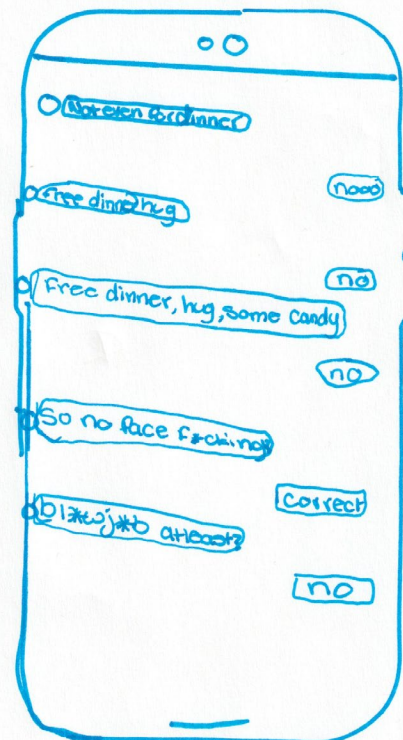 Not even for dinner
nooo
free dinner hug
no
Free dinner, hug, some candy
no
So no face f*cking
correct
bl*wj*b atleast?
no